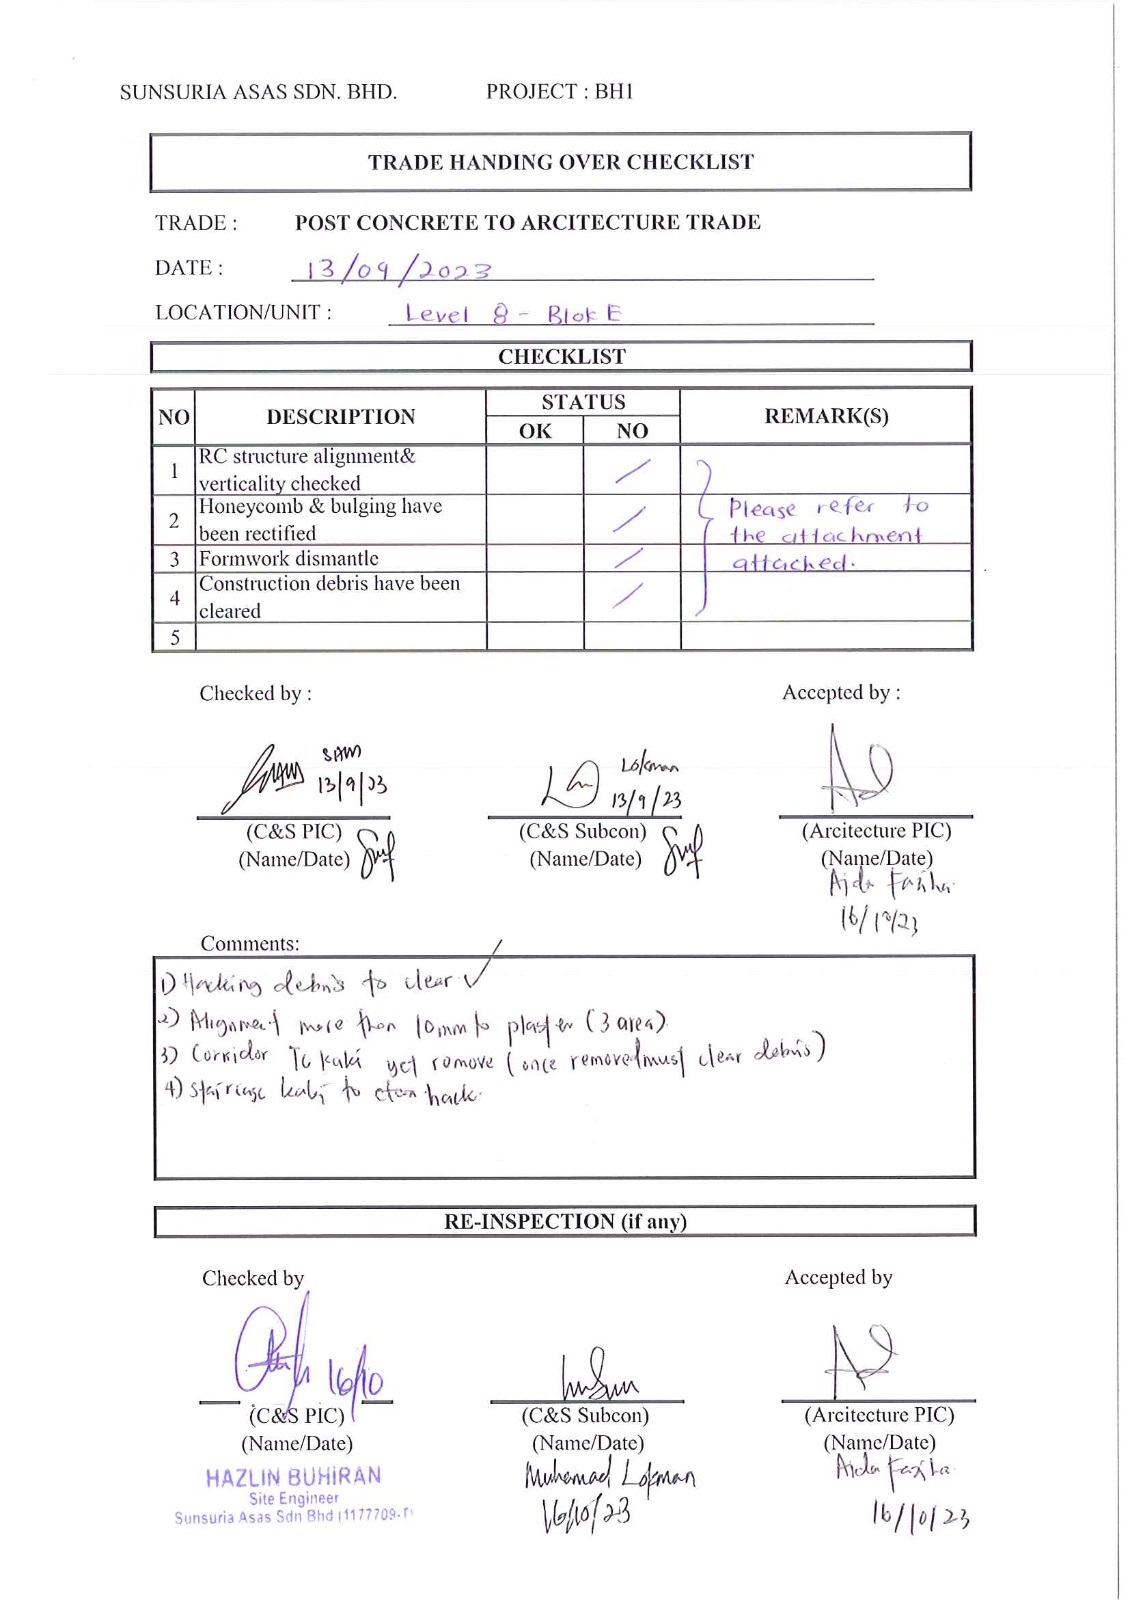 SUNSURIA ASAS SDN. BHD. PROJECT : BH1
TRADE HANDING OVER CHECKLIST
TRADE : POST CONCRETE TO ARCITECTURE TRADE
DATE : 13/09/2023
LOCATION/UNIT : Level 8 - Blok E
CHECKLIST
NO DESCRIPTION STATUS REMARK(S)
OK NO
1 RC structure alignment& verticality checked /
2 Honeycomb & bulging have been rectified /
3 Formwork dismantle /
4 Construction debris have been cleared /
5
Please refer to
the attachment
attached.
Checked by : Accepted by :
SAM
13/9/23
Lokman
13/9/23
(C&S PIC) (C&S Subcon) (Arcitecture PIC)
(Name/Date) (Name/Date) (Name/Date)
Aida Faziha
16/10/23
Comments:
1) Hacking debris to clear ✓
2) Alignment more than 10mm to plaster (3 area)
3) Corridor TG kaki yet remove (once removed must clear debris)
4) Staircase kaki to hack.
RE-INSPECTION (if any)
Checked by Accepted by
16/10
(C&S PIC) (C&S Subcon) (Arcitecture PIC)
(Name/Date) (Name/Date) (Name/Date)
HAZLIN BUHIRAN
Site Engineer
Sunsuria Asas Sdn Bhd (1177709-
Muhamad Lokman
16/10/23
Aida Faziha
16/10/23